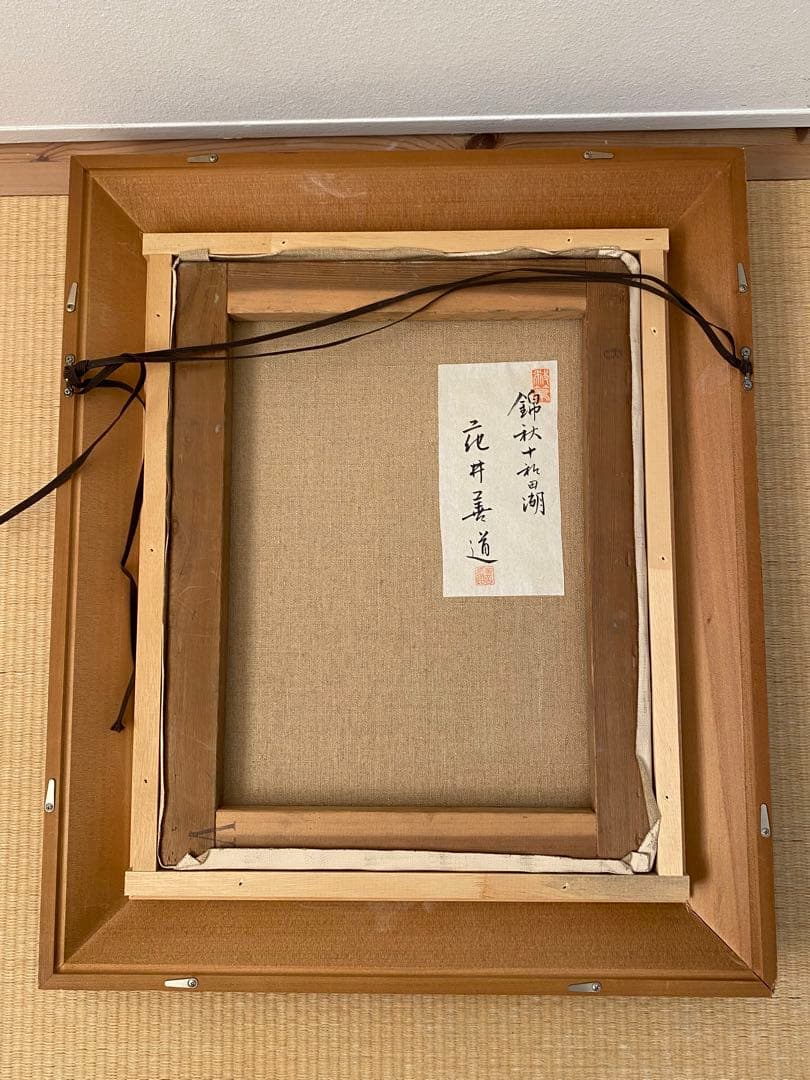 錦秋十和田湖
花井善道